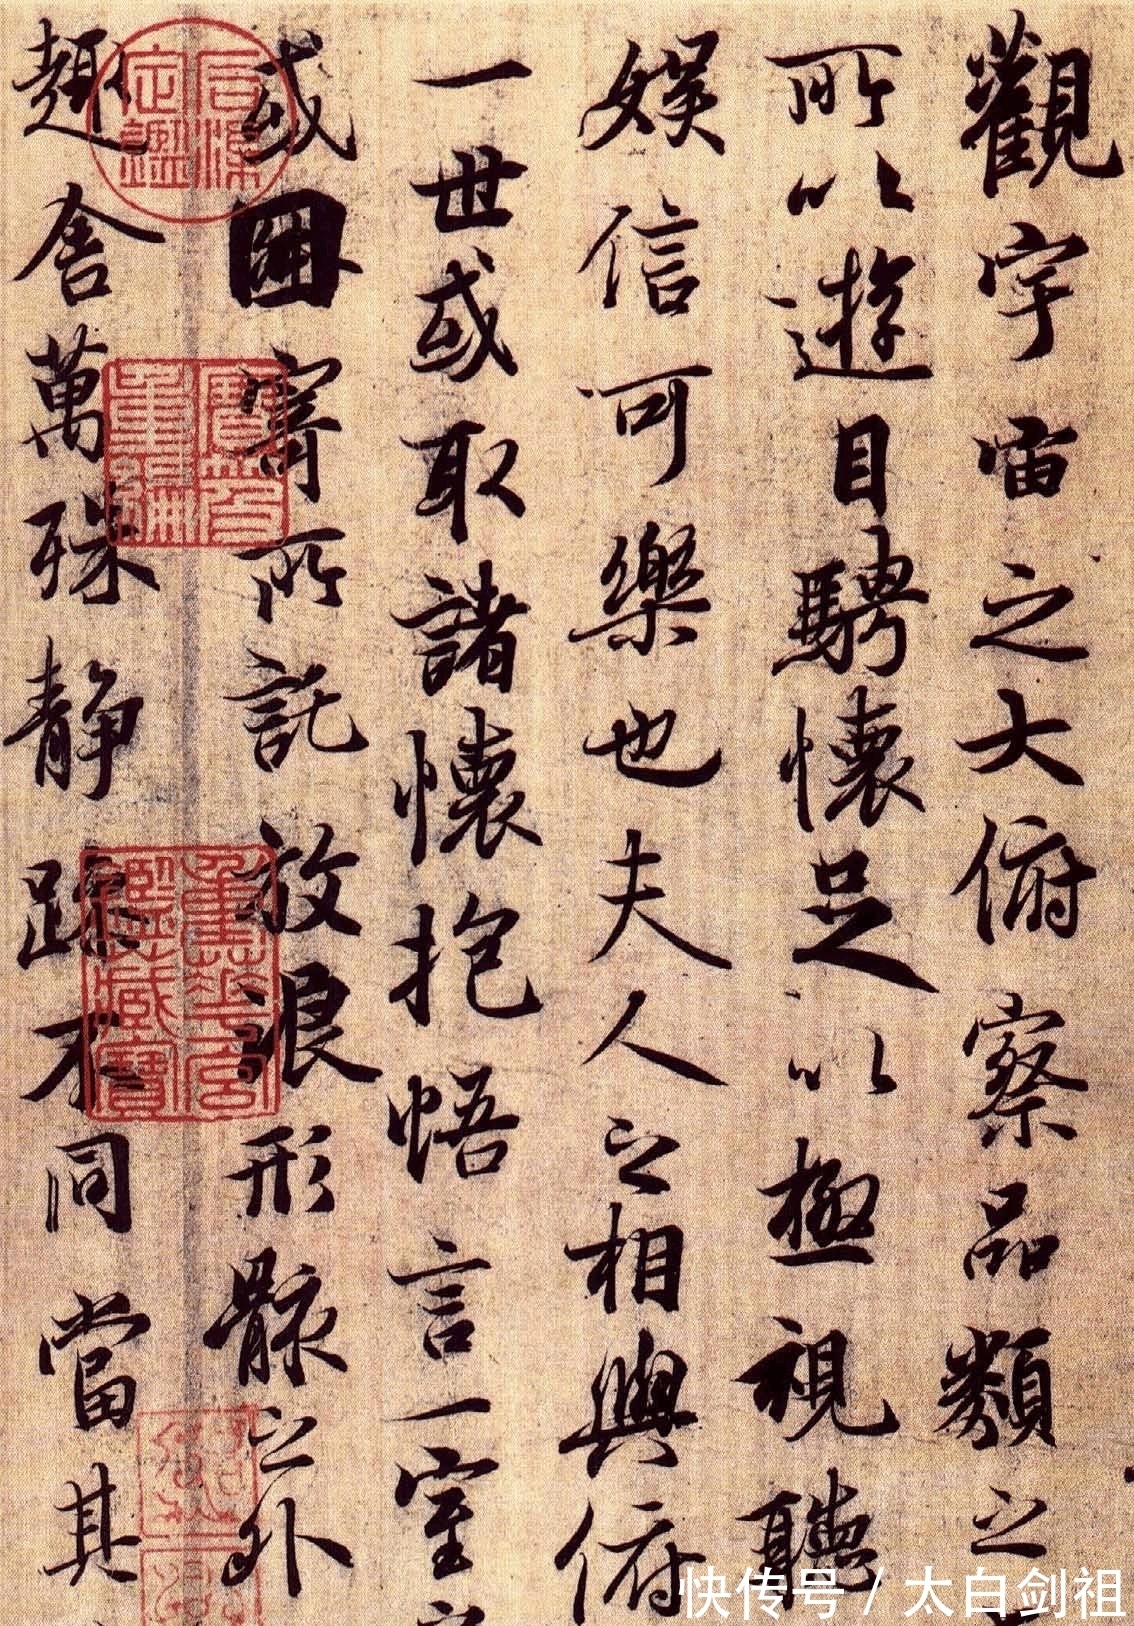 觀宇宙之大俯察品類之
所以遊目騁懷足以極視聽
娛信可樂也夫人之相與俯
一世或取諸懷抱悟言一室
或因寄所託放浪形骸之外
趣舍萬殊静躁不同當其
石渠定鑑
寶笈重編
重華宮鑑藏寶
快传号 / 太白剑祖